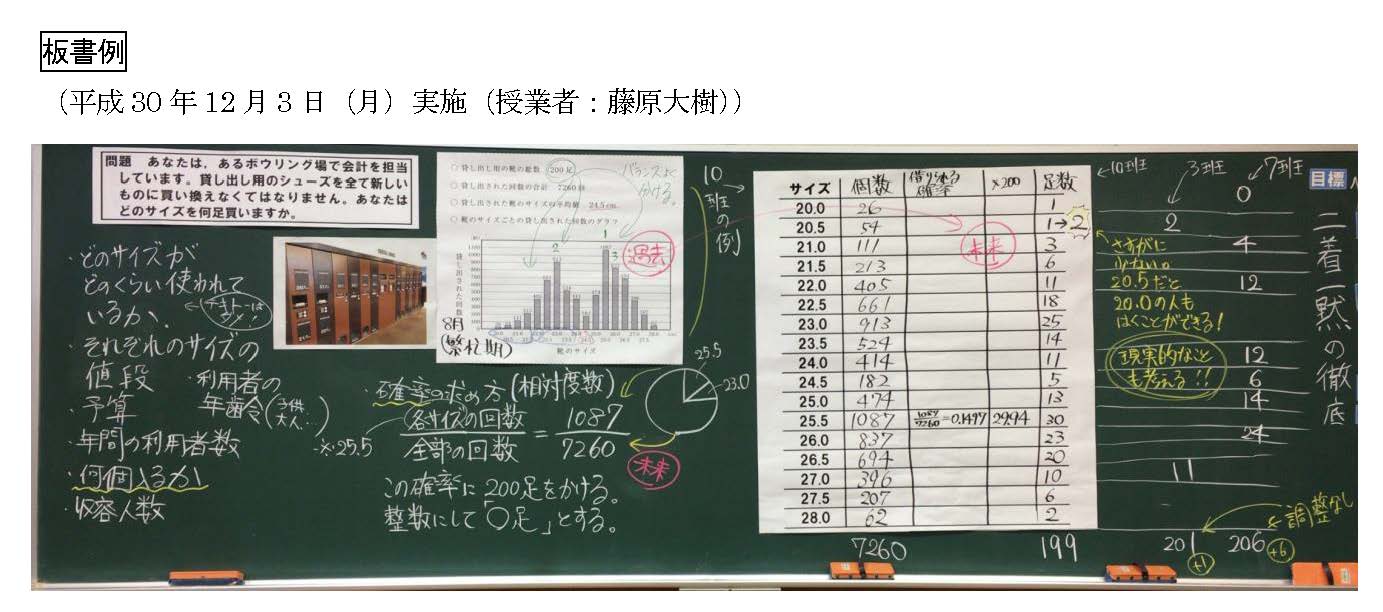 板書例
（平成 30 年 12 月 3 日（月）実施（授業者：藤原大樹））
問題　あなたは，あるボウリング場で会計を担当
しています。貸し出し用のシューズを全て新しい
ものに買い換えなくてはなりません。あなたは
どのサイズを何足買いますか。
・どのサイズが
どのくらい使われて
いるか．
・それぞれのサイズの
値段
・予算
・年間の利用者数
・何個入るか
・収容人数
・利用者の
年齢（子供 大人…）
○ 貸し出し用の靴の総数　200足
○ 貸し出された回数の合計　7260回
○ 貸し出された靴のサイズの平均値　24.5cm
○ 靴のサイズごとの貸し出された回数のグラフ
バランスよく
分ける。
貸し出された回数
靴のサイズ
2
1
3
過去
8月
(繁忙期)
・確率の求め方(相対度数)
※25.5
各サイズの回数
全部の回数
=
1087
7260
未来
この確率に200足をかける。
整数にして「○足」とする。
25.5
23.0
10班の例
サイズ 個数 借りられる確率 ×200 足数
20.0 26 1
20.5 54 1→2
21.0 111 3
21.5 213 6
22.0 405 11
22.5 661 18
23.0 913 25
23.5 524 14
24.0 414 11
24.5 182 5
25.0 474 13
25.5 1087 1087/7260=0.1497 29.94 30
26.0 837 23
26.5 694 20
27.0 396 10
27.5 207 6
28.0 62 2
未来
7260 199
10班
3班
7班
2
11
201
+1
0
4
12
12
6
14
24
206
+6
調整なし
さすがに
少ない。
20.5だと
20.0の人も
はくことができる！
現実的なこと
も考える！！
目標
二着一黙の徹底